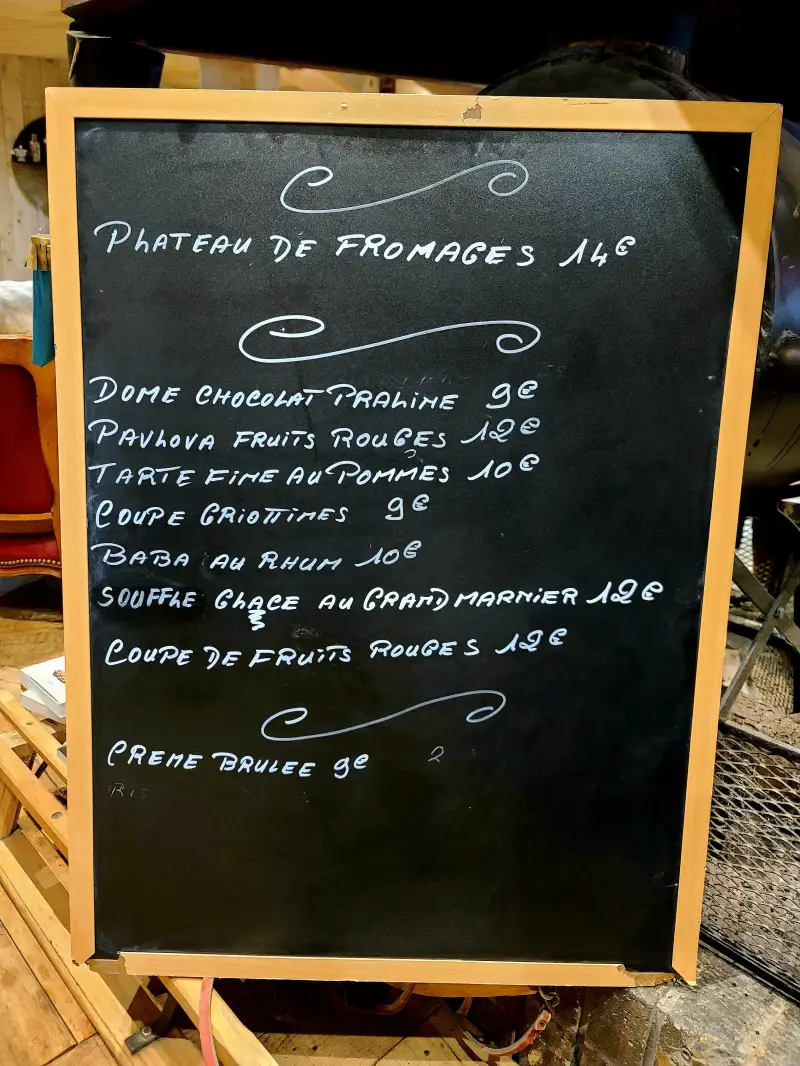 PLATEAU DE FROMAGES 14€
DOME CHOCOLAT PRALINE 9€
PAVLOVA FRUITS ROUGES 12€
TARTE FINE AU POMMES 10€
COUPE GRIOTTINES 9€
BABA AU RHUM 10€
SOUFFLE GLACE AU GRAND MARNIER 12€
COUPE DE FRUITS ROUGES 12€
CREME BRULEE 9€